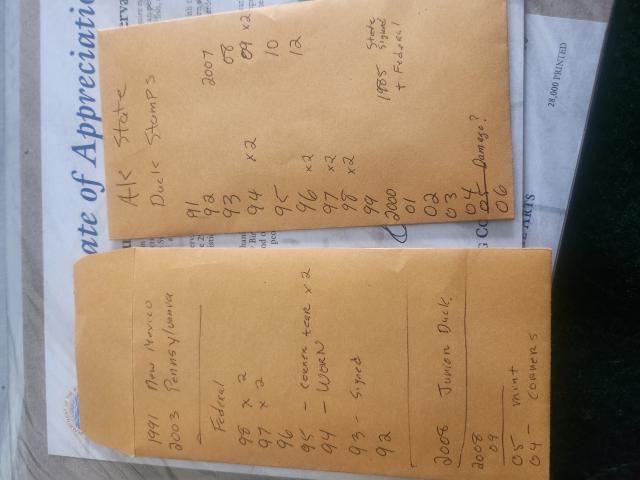 AK State
Duck Stamps
91
92
93
94 x2
95
96 x2
97 x2
98 x2
99
2000
01
02
03
04
05 Damage?
06
2007
08
09 x2
10
12
1985 State
Signed
+ Federal
1991 New Mexico
2003 Pennsylvania
Federal
98 x 2
97 x 2
96
95 - Corner tear x 2
94 - WORN
93 - Signed
92
2008 Junior Duck
2008
09
05 - mint
04 - Corners
ate of Appreciation
28,000 PRINTED